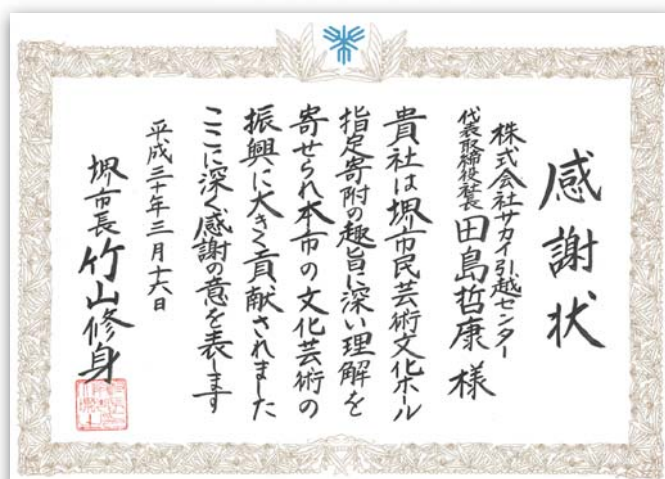 感謝状
株式会社サカイ引越センター
代表取締役社長 田島哲康 様
貴社は堺市民芸術文化ホール
指定寄附の趣旨に深い理解を
寄せられ本市の文化芸術の
振興に大きく貢献されました
ここに深く感謝の意を表します
平成三十年三月十六日
堺市長 竹山修身